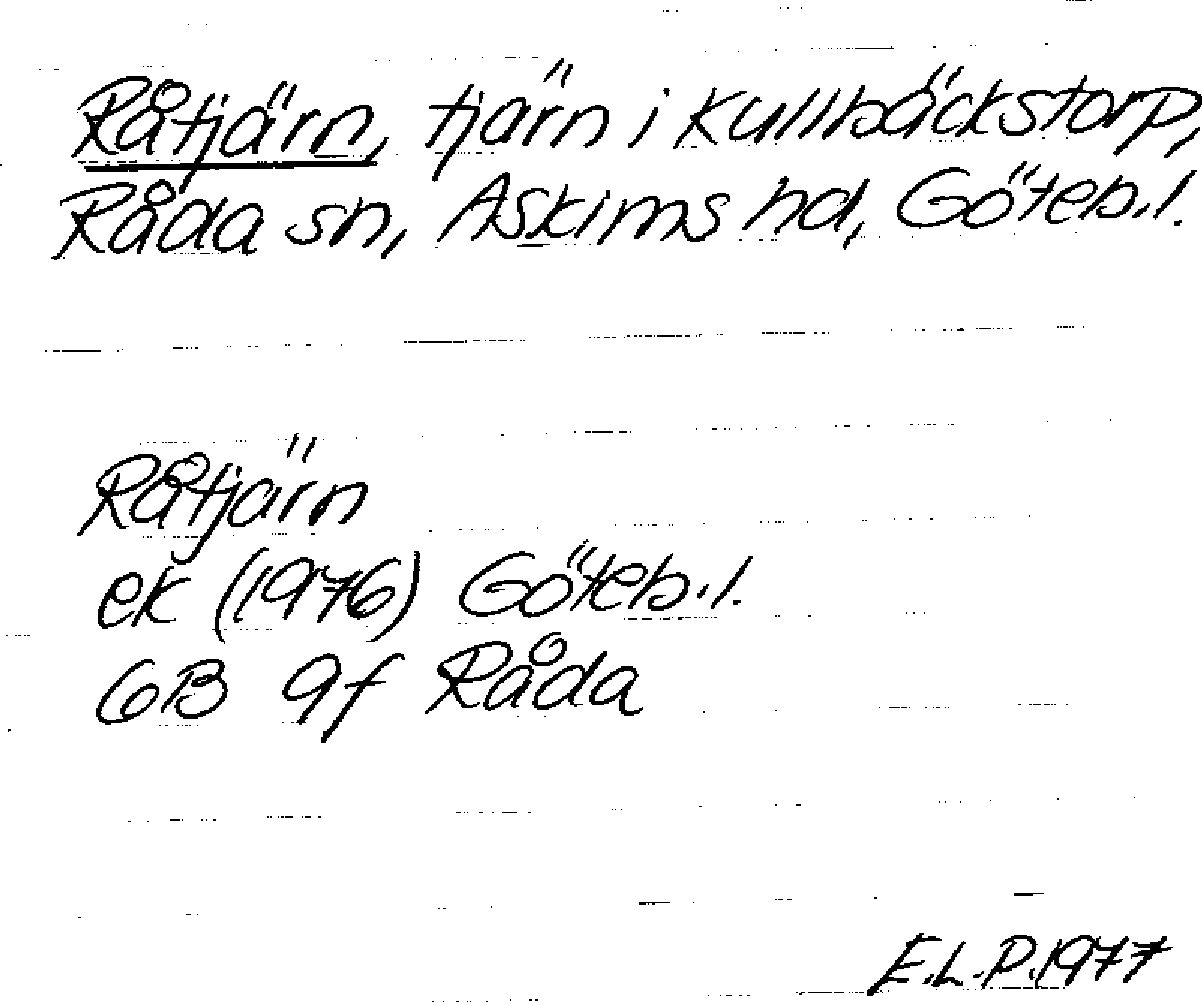 Råtjärn, tjärn i Kullbäckstorp,
Råda sn, Askims hd, Göteb.l.
Råtjärn
ek (1976) Göteb.l.
6B 9f Råda
E.L.P.1977